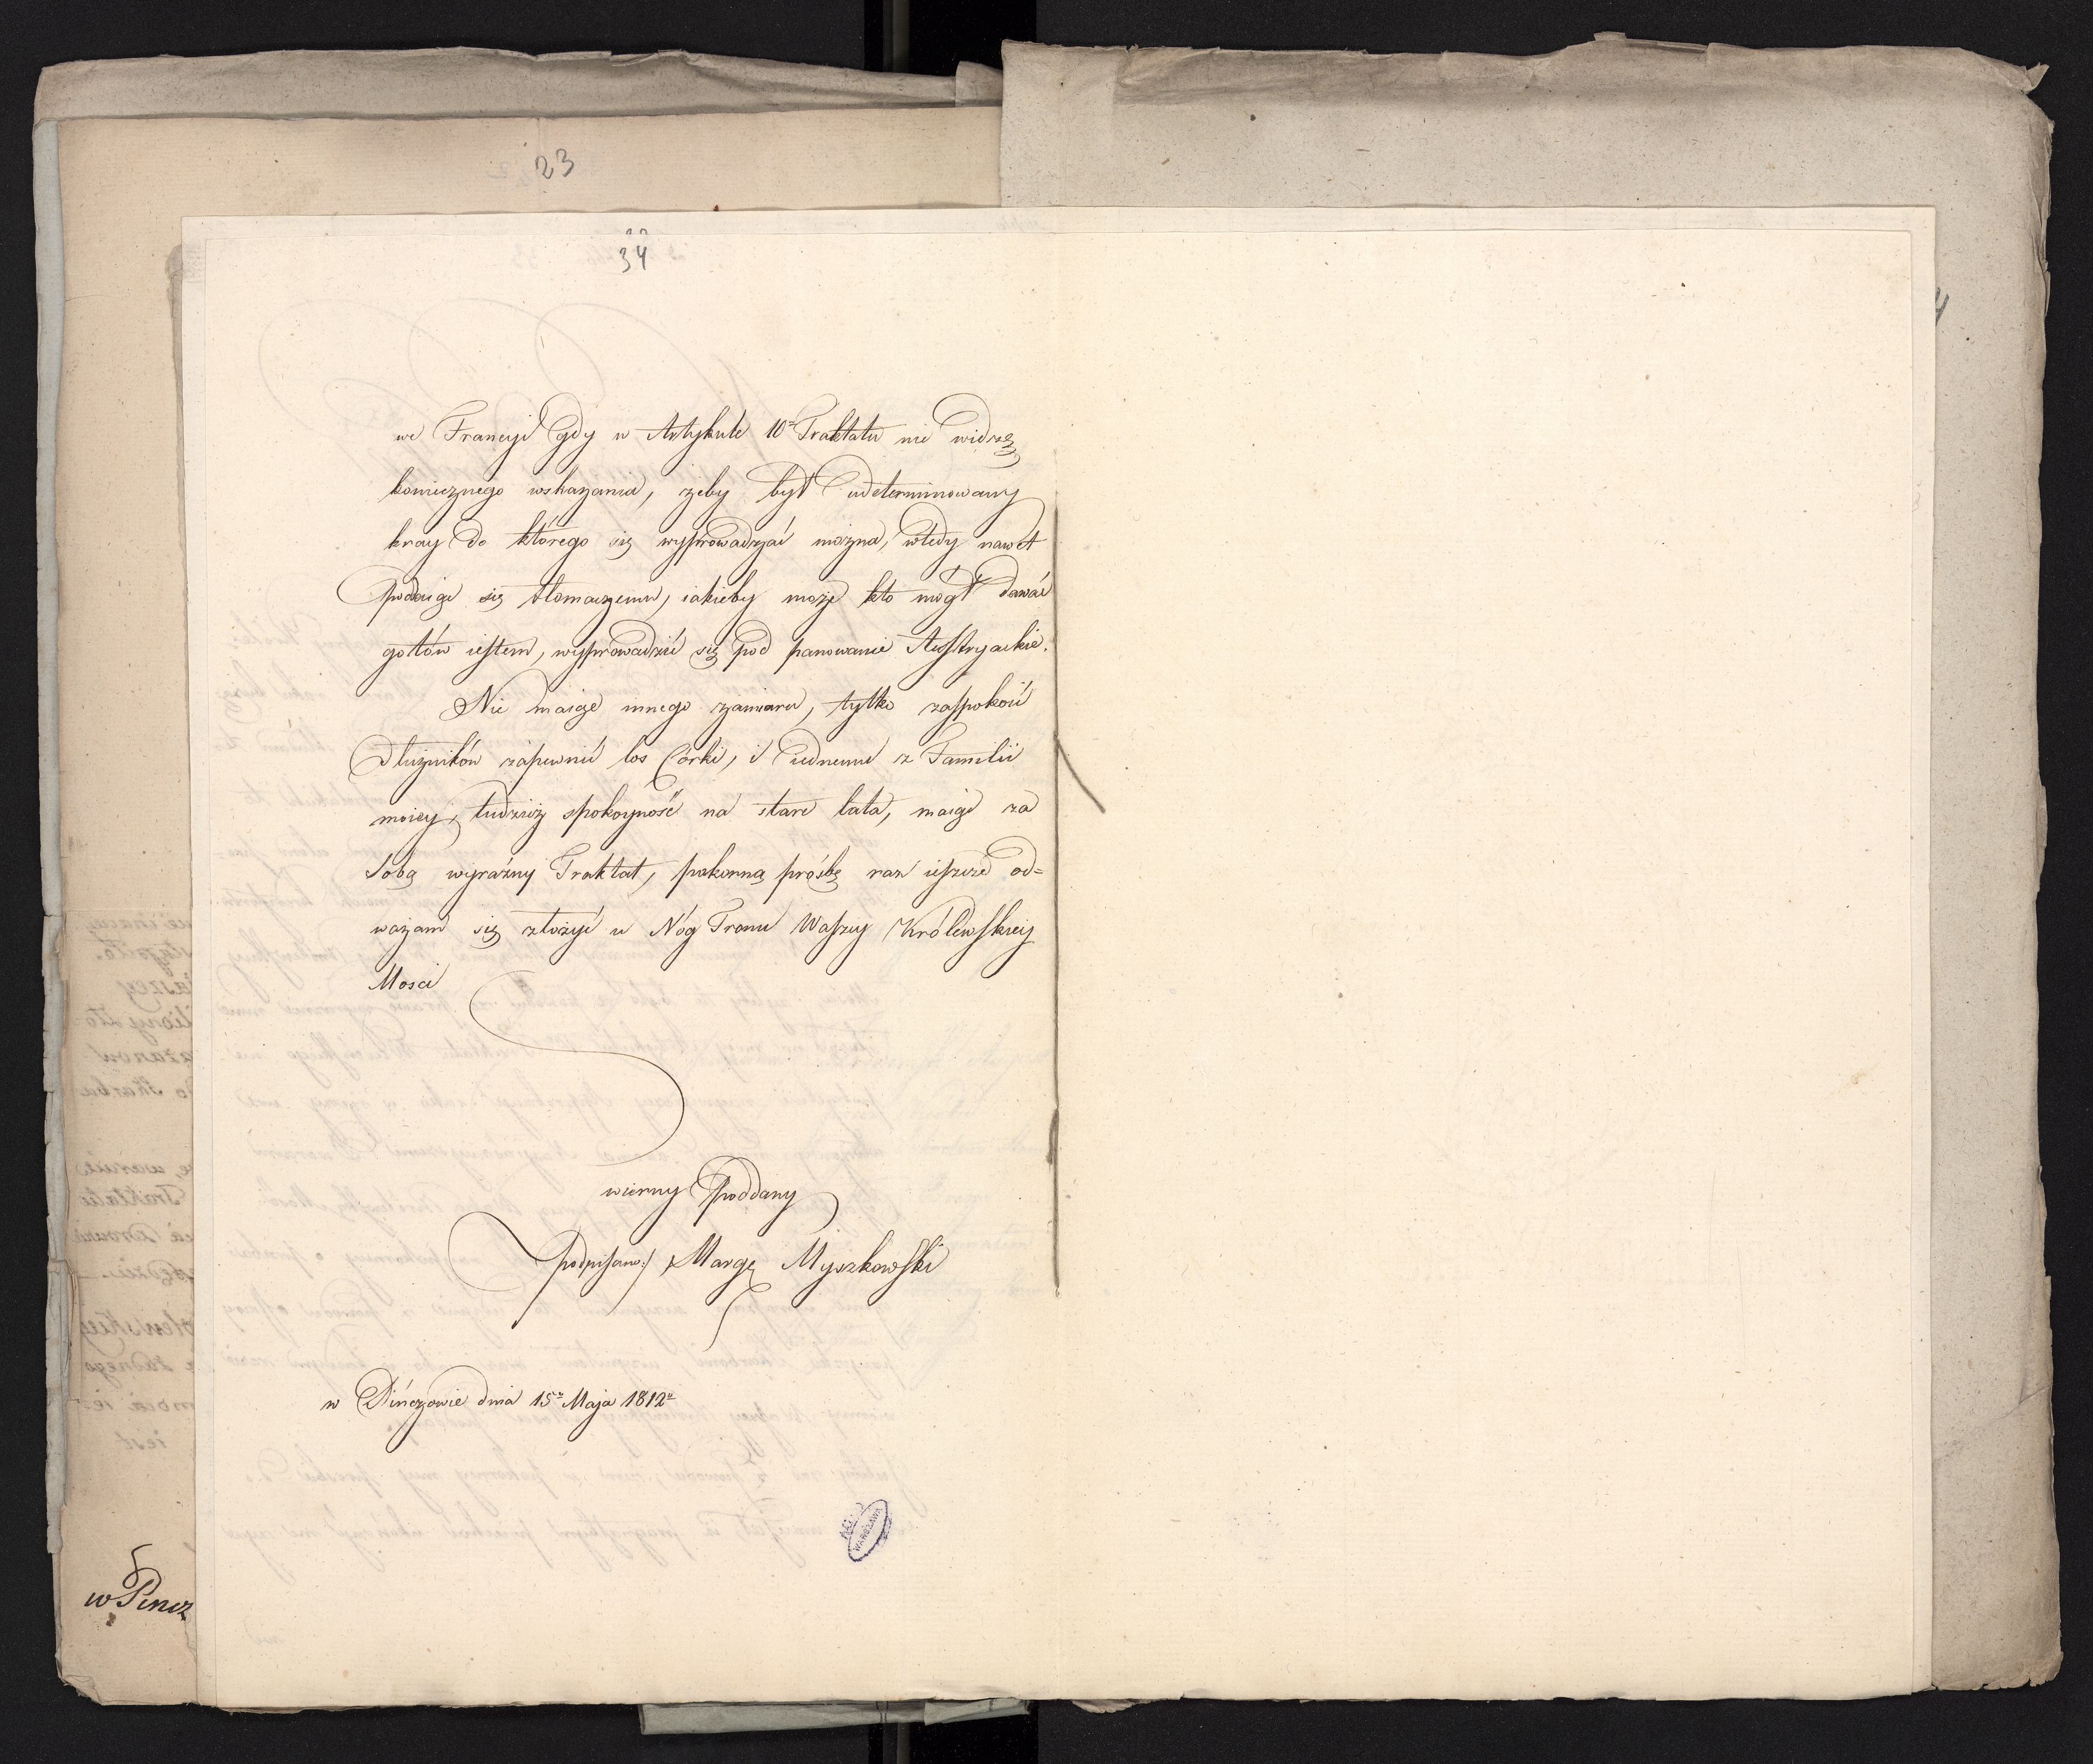 23
34
we Francyi gdy w Artykule 10ᵐ Traktatu nie widzę
koniecznego wskazania, żeby był udeterminowany
kray do którego się wyprowadzać można, wtedy nawet
Poddaiąc się tłomaczeniu, iakieby może kto mógł dawać
gotów iestem, wyprowadzić się pod panowanie Austryackie.
Nie maiąc innego zamiaru, tylko zaspokoić
Dłużników zapewnić los Córki, i iednemu z Familii
moiey, tudzież spokoyność na stare lata, maiąc za
Sobą wyraźny Traktat, pokorną prośbę raz ieszcze od=
ważam się złożyć u Nóg Tronu Waszey Królewskiey
Mosci
wierny Poddany
Podpisano:/ Margę Myszkowski
w Pińczowie dnia 15ᵒ Maja 1812ᵒ
w Pincz